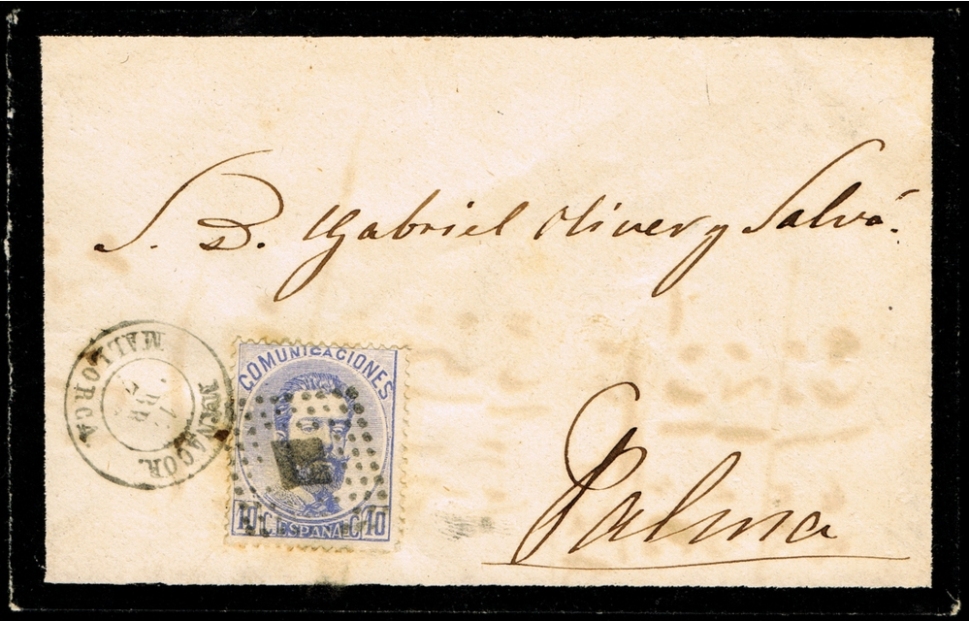 S. D. Gabriel Oliver y Salvá.
MALLORCA
MANACOR
COMUNICACIONES
10 C. ESPAÑA C. 10
Palma